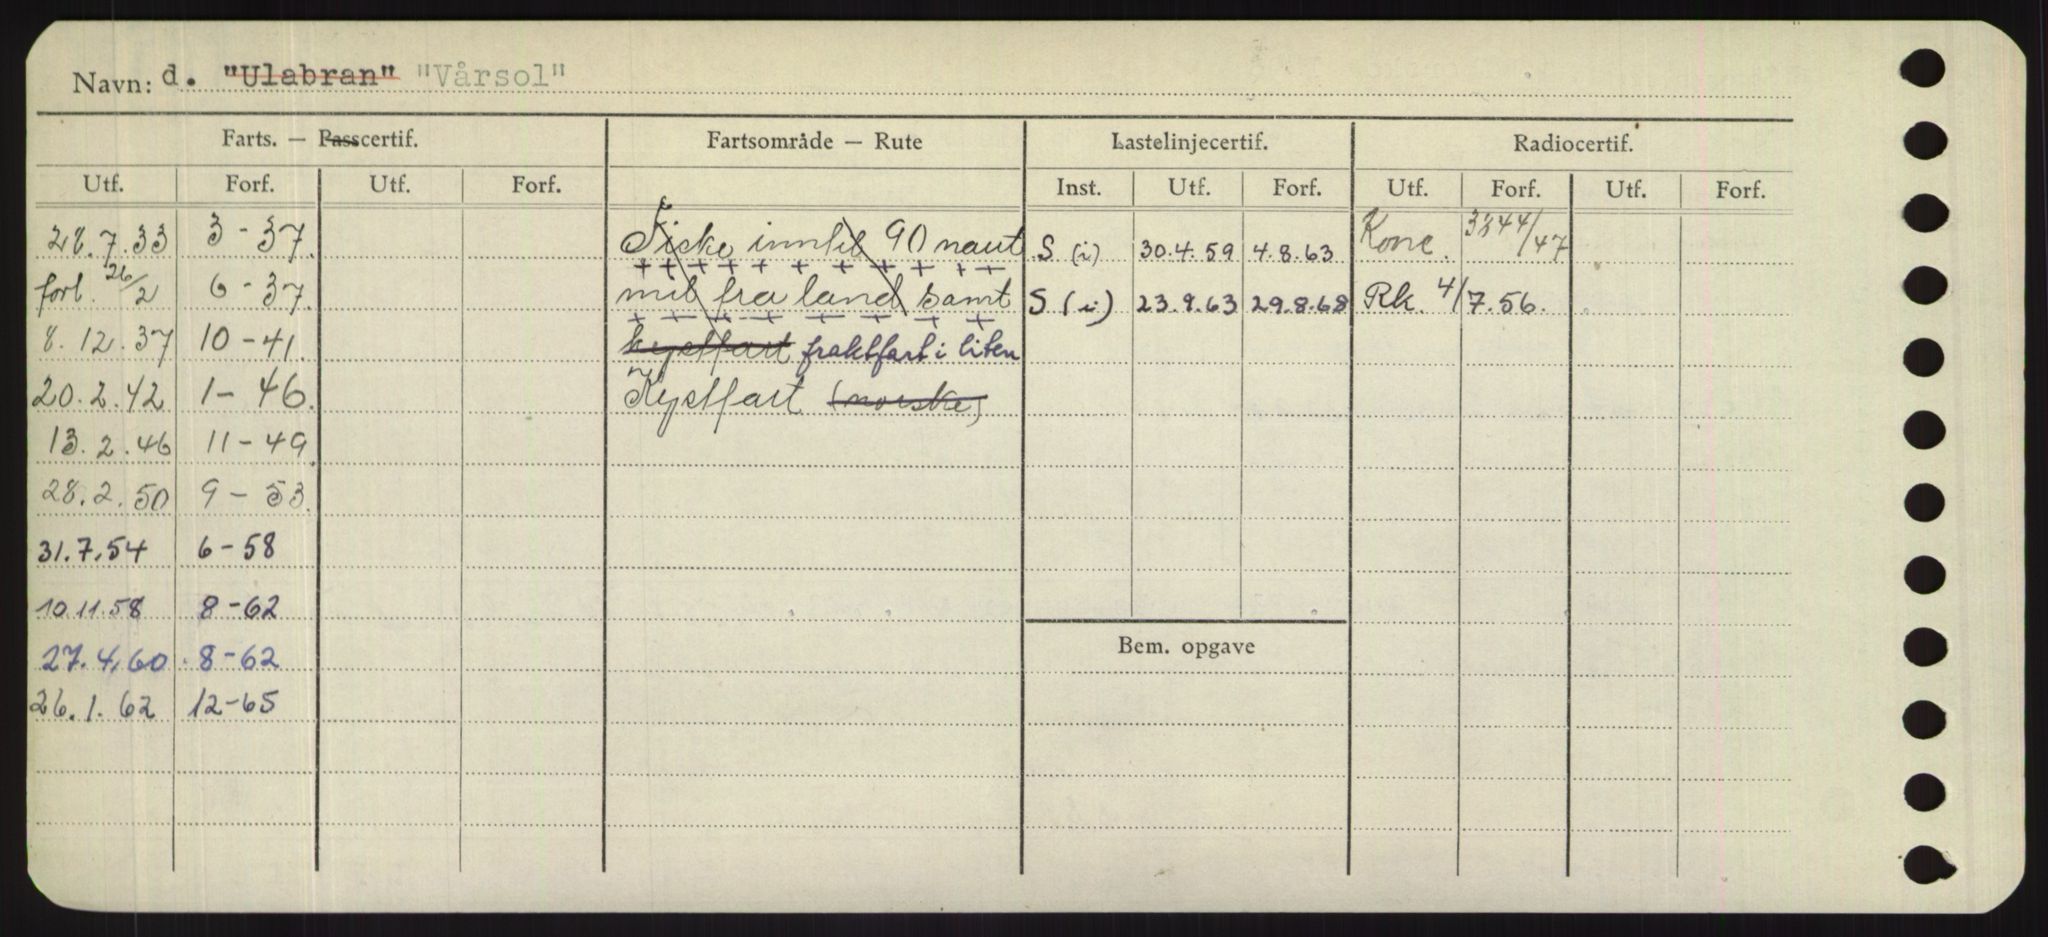 Navn: d. "Ulabran" "Vårsol"
Farts. — Passcertif. Fartsområde — Rute Lastelinjecertif. Radiocertif.
Utf. Forf. Utf. Forf. Inst. Utf. Forf. Utf. Forf. Utf. Forf.
28.7.33 3-37. Fiske inntil 90 naut S (i) 30.4.59 4.8.63 Konc. 3844/47
forl. 26/2 6-37. mil fra land samt S (i) 23.9.63 29.8.68 Rk. 4/7.56.
8.12.37 10-41. kystfart fraktfart i liten
20.2.42 1-46. Kystfart (norske)
13.2.46 11-49
28.2.50 9-53.
31.7.54 6-58
10.11.58 8-62
Bem. opgave
27.4.60 8-62
26.1.62 12-65